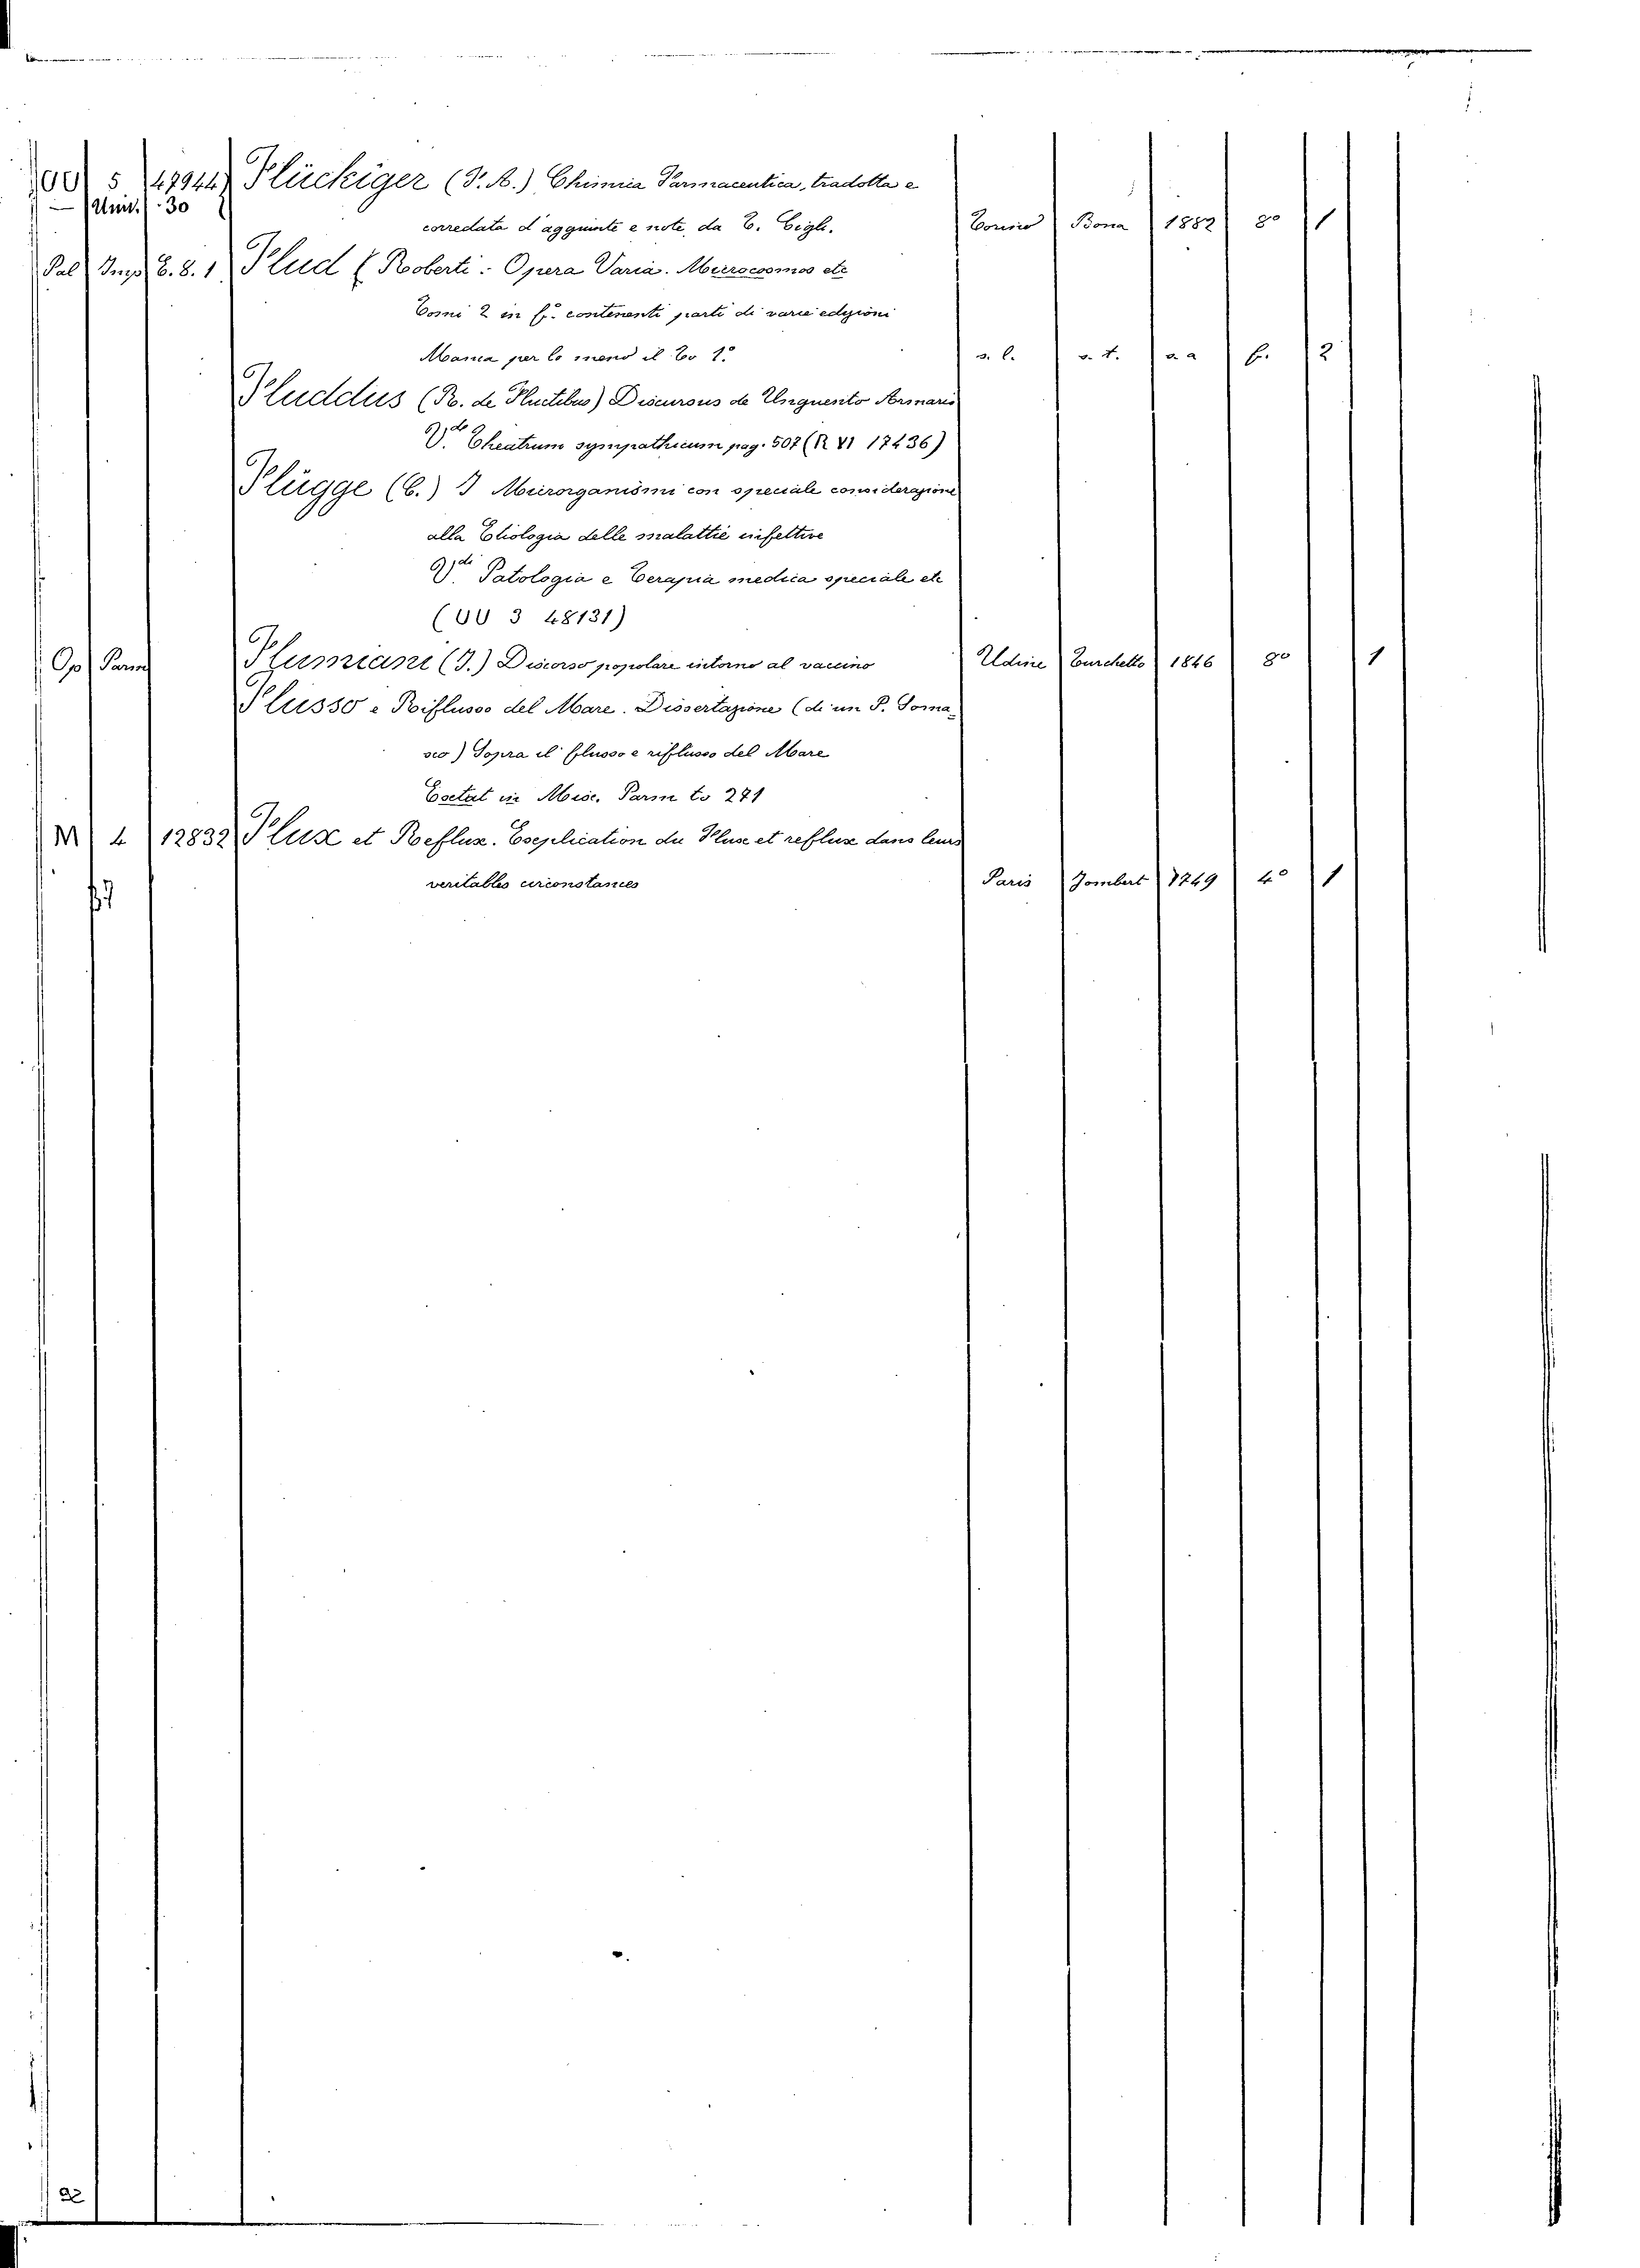 UU 5 47944 Flückiger (F. A.) Chimica Farmaceutica, tradotta e
— Univ. 30
corredata d'aggiunte e note, da C. Gigli. Torino Bona 1882 8º 1
Pal Imp C. 8. 1 Flud (Roberti: Opera Varia. Microcosmos etc
Tomi 2 in f. contenenti parti di varie edizioni
Manca per lo meno il To 1º s. l. s. t. s. a f. 2
Fluddus (R. de Fluctibus) Discursus de Unguento Armario
V.do Theatrum sympathicum pag. 507 (R VI 17436)
Flügge (C.) I Microrganismi con speciale considerazione
alla Etiologia delle malattie infettive
V.di Patologia e Terapia medica speciale etc
(UU 3 48131)
Op Parm Flumiani (G.) Discorso popolare intorno al vaccino Udine Turchetto 1846 8º 1
Flusso e Riflusso del Mare. Dissertazione (di un P. Soma-
sco) Sopra il flusso e riflusso del Mare
Exstat in Misc. Parm to 271
M 4 12832 Flux et Reflux. Explication du Flux et reflux dans leurs
veritables circonstances Paris Jombert 1749 4º 1